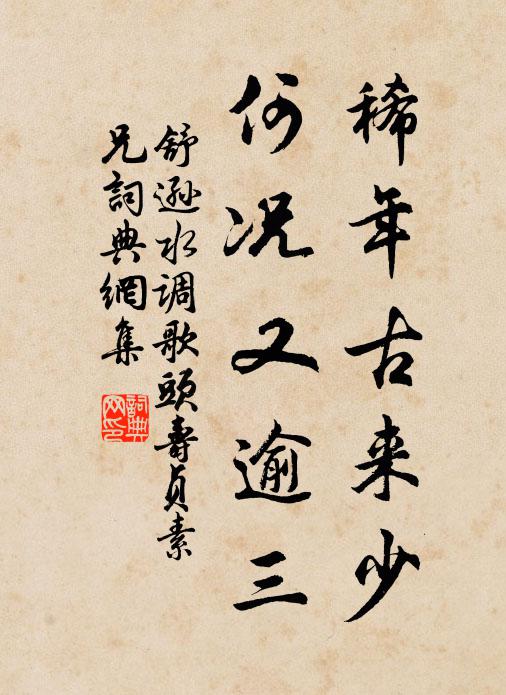 稀年古来少
何况又逾三
舒逊水调歌頭壽贞素
兄詞典網集
詞典
网印